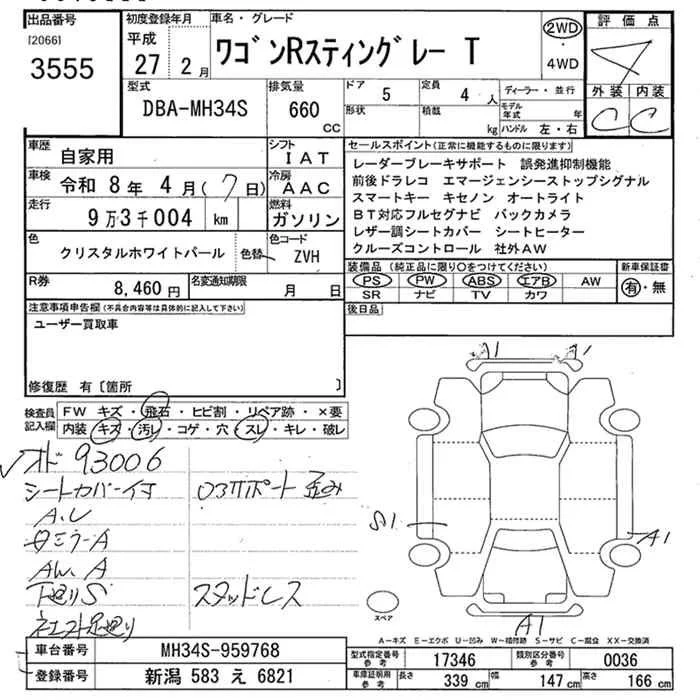 出品番号
[2066]
3555
初度登録年月
平成
27 2月
車名・グレード
ワゴンRスティングレー T
2WD
・
4WD
評価点
外装 内装
C C
型式
DBA-MH34S
排気量
660
CC
ドア 5
定員 4 人
形状
積載 kg
ディーラー・並行
モデル年式 年
ハンドル 左・右
車歴 自家用
シフト IAT
車検 令和 8年 4月(7日)
冷房 AAC
走行 9万3千004 km
燃料 ガソリン
色 クリスタルホワイトパール
色替
色コード ZVH
R券 8,460円
名変通知期限 月 日
セールスポイント(正常に機能するものに限ります)
レーダーブレーキサポート 誤発進抑制機能
前後ドラレコ エマージェンシーストップシグナル
スマートキー キセノン オートライト
BT対応フルセグナビ バックカメラ
レザー調シートカバー シートヒーター
クルーズコントロール 社外AW
装備品(純正品に限り○をつけてください)
PS PW ABS エアB AW
SR ナビ TV カワ
新車保証書
有・無
後日品
注意事項申告欄(不具合内容等は具体的に記入して下さい)
ユーザー買取車
修復歴 有〔箇所 〕
検査員記入欄
FW キズ・飛石・ヒビ割・リペア跡・×要
内装 キズ・汚レ・コゲ・穴・スレ・キレ・破レ
93006
シートカバー付
A.U
AW.A
下廻りS
スタッドレス
A1
S1
A1
A1
スペア
A－キズ E－エクボ U－凹み W－補修跡 S－サビ C－腐食 XX－交換済
車台番号 MH34S-959768
登録番号 新潟 583 え 6821
型式指定番号 参考 17346
類別区分番号 参考 0036
車庫証明用 参考 長さ 339 cm 幅 147 cm 高さ 166 cm